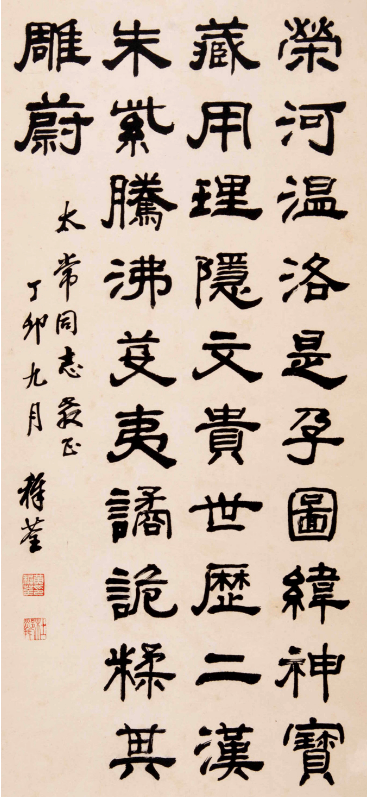 榮河溫洛是孕圖緯神寶
藏用理隱文貴世歷二漢
朱紫騰沸芟夷譎詭糅其
雕蔚
太常同志教正
丁卯九月 稚荃